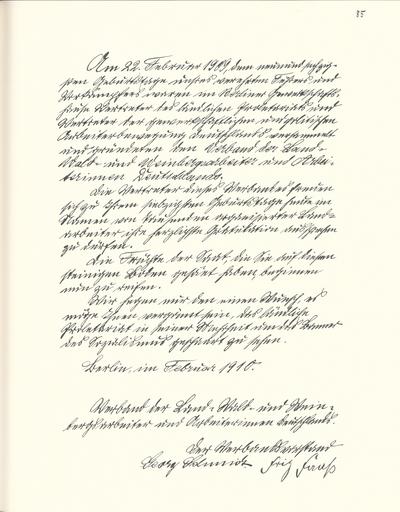 85
Am 22. Februar 1909, dem neunundsechzig-
sten Geburtstage unseres verehrten Führers und
Vorkämpfers waren im Berliner Gewerkschafts-
hause Vertreter des ländlichen Proletariats und
Vertreter der gewerkschaftlichen und politischen
Arbeiterbewegung Deutschlands versammelt
und gründeten den Verband der Land-
Wald- und Weinbergsarbeiter und Arbei-
terinnen Deutschlands.
Die Vertreter dieses Verbandes freuen
sich zu Ihrem siebzigsten Geburtstage heute im
Namen von tausenden organisierter Land-
arbeiter ihre herzlichste Gratulation aussprechen
zu dürfen.
Die Früchte der Saat, die Sie auf diesen
steinigen Boden gesäet haben, beginnen
nun zu reifen.
Wir hegen nur den einen Wunsch, es
möge Ihnen vergönnt sein, das ländliche
Proletariat in seiner Mehrheit um das Banner
des Sozialismus geschart zu sehen.
Berlin, im Februar 1910.
Verband der Land- Wald- und Wein-
bergsarbeiter und Arbeiterinnen Deutschlands.
Der Verbandsvorstand
Georg Schmidt Fritz Faaß